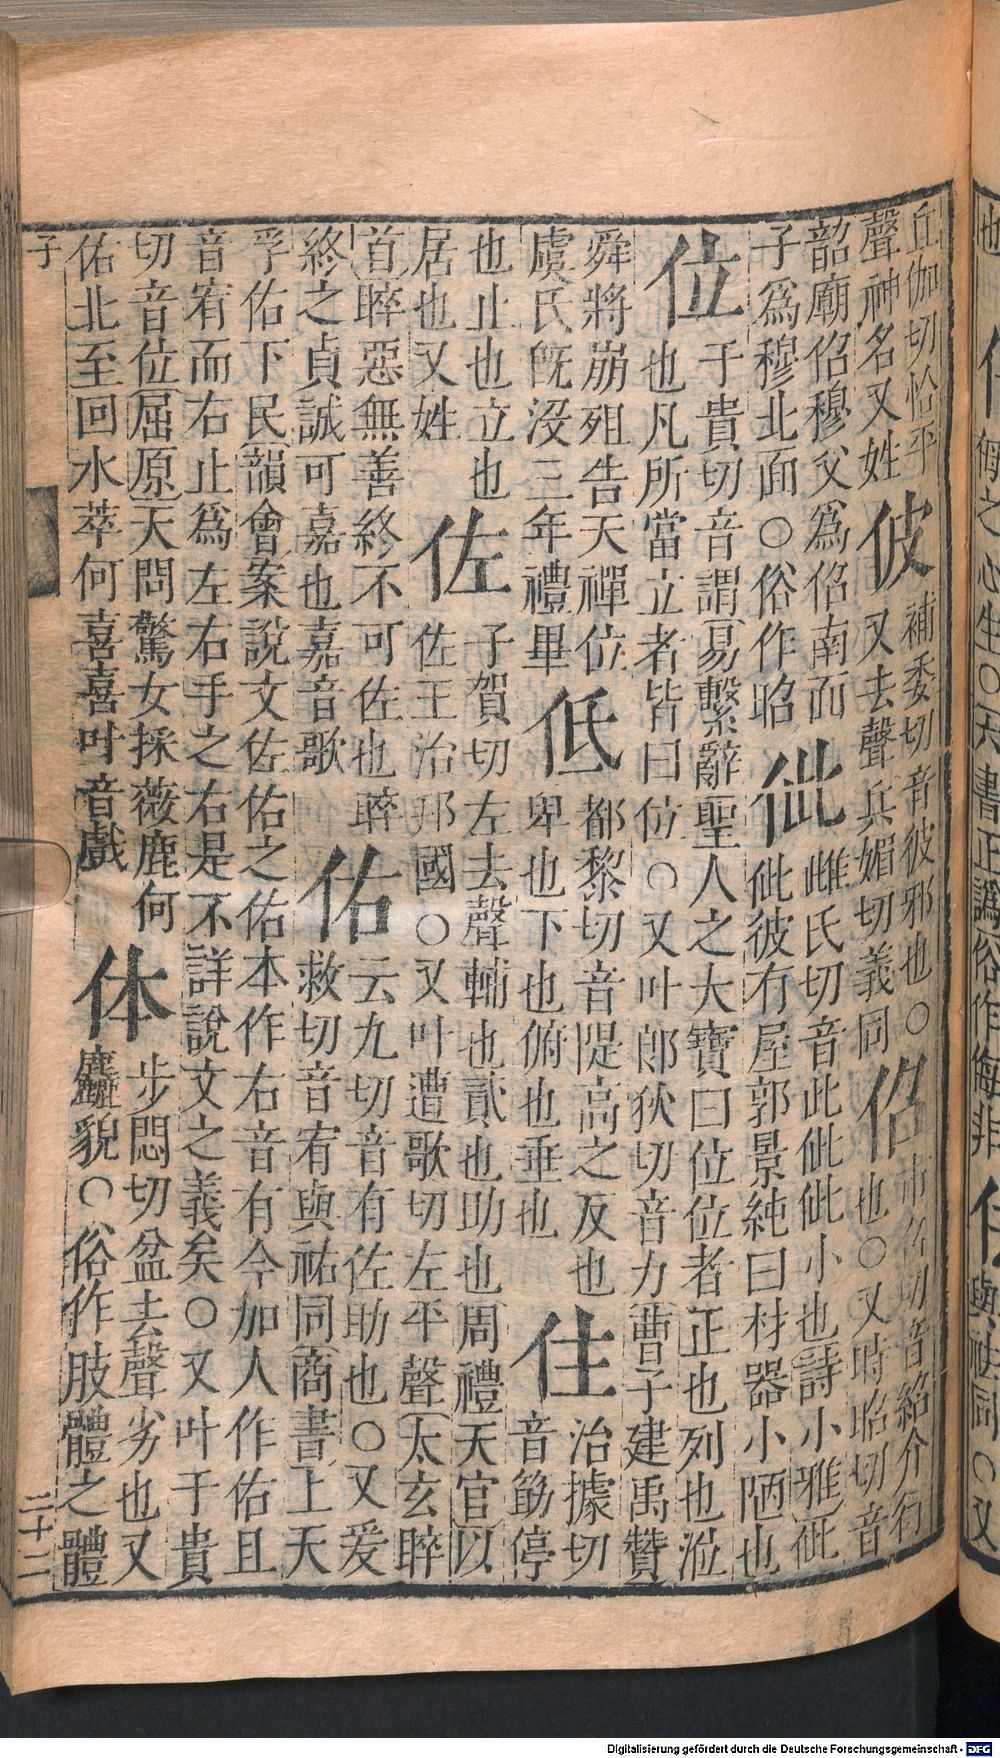 侮之心生○六書正譌俗作侮非
丘伽切恰平
聲神名又姓
佊
補委切音彼邪也○
又去聲兵媚切義同
佋
市召切音紹介行
也○又時昭切音
韶廟佋穆父爲佋南面
子爲穆北面○俗作昭
佌
雌氏切音此佌佌小也詩小雅佌
佌彼有屋郭景純曰材器小陋也
位
于貴切音謂易繫辭聖人之大寶曰位位者正也列也涖
也凡所當立者皆曰位○又叶郎狄切音力曹子建禹贊
舜將崩殂告天禪位
虞氏旣沒三年禮畢
低
都黎切音隄高之反也
卑也下也俯也垂也
住
治據切
音筯停
也止也立也
居也又姓
佐
子賀切左去聲輔也貳也助也周禮天官以
佐王治邦國○又叶遭歌切左平聲太玄睟
首睟惡無善終不可佐也睟
終之貞誠可嘉也嘉音歌
佑
云九切音有佐助也○又爰
救切音宥與祐同商書上天
孚佑下民韻會案說文佐佑之佑本作右音有今加人作佑且
音宥而右止爲左右手之右是不詳說文之義矣○又叶于貴
切音位屈原天問驚女採薇鹿何
佑北至回水萃何喜喜叶音戲
体
步悶切盆去聲劣也又
麤貌○俗作肢體之體
子
二十二
Digitalisierung gefördert durch die Deutsche Forschungsgemeinschaft - DFG